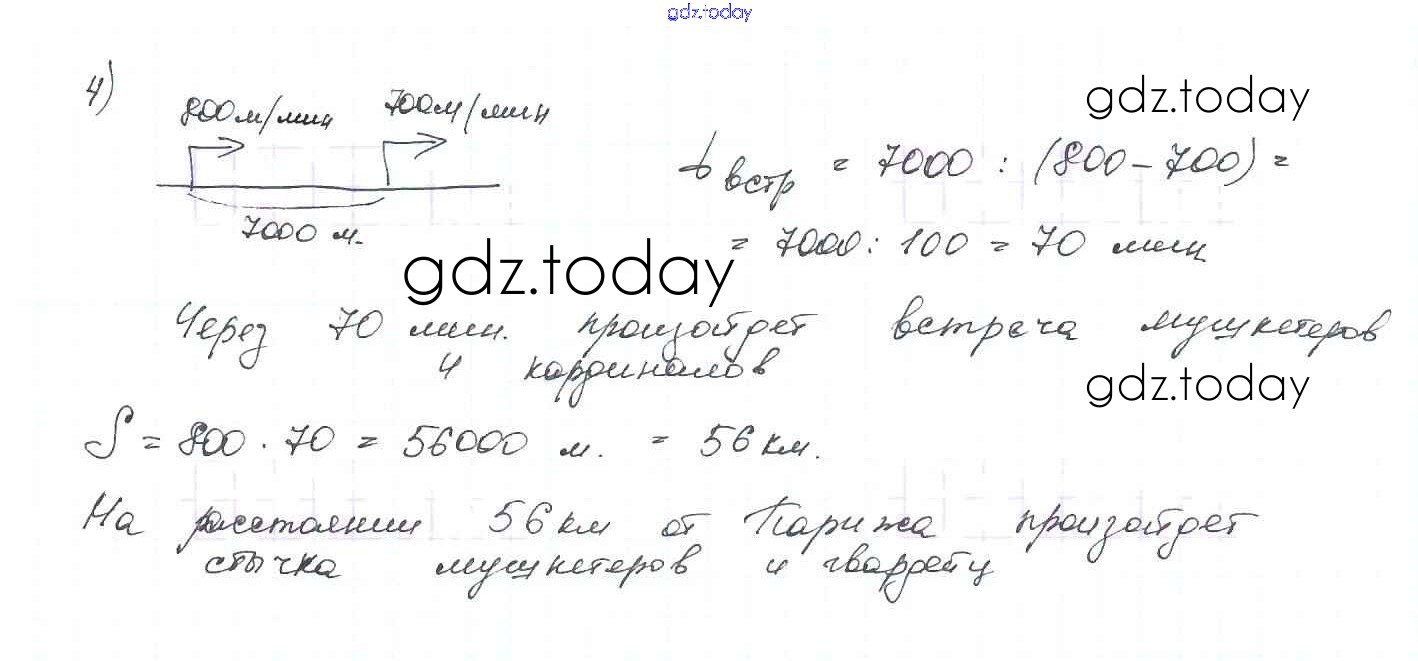 gdz.today
4)
800м/мин 700м/мин
gdz.today
7000 м.
t встр = 7000 : (800 - 700) =
= 7000 : 100 = 70 мин
gdz.today
Через 70 мин. произойдет встреча мушкетеров
и кардиналов
gdz.today
S = 800 · 70 = 56000 м. = 56 км.
На расстоянии 56 км от Парижа произойдет
стычка мушкетеров и гвардейц